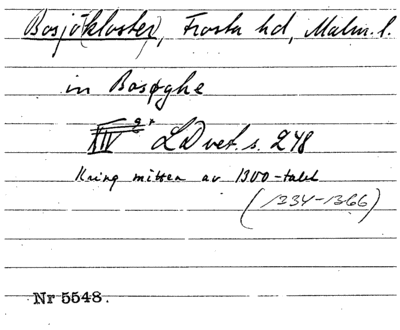 Bosjö(kloster), Frosta hd, Malm. l.
in Bosøghe
XIV 2 LD vet. s. 248
Kring mitten av 1300-talet
(1334-1366)
Nr 5548.